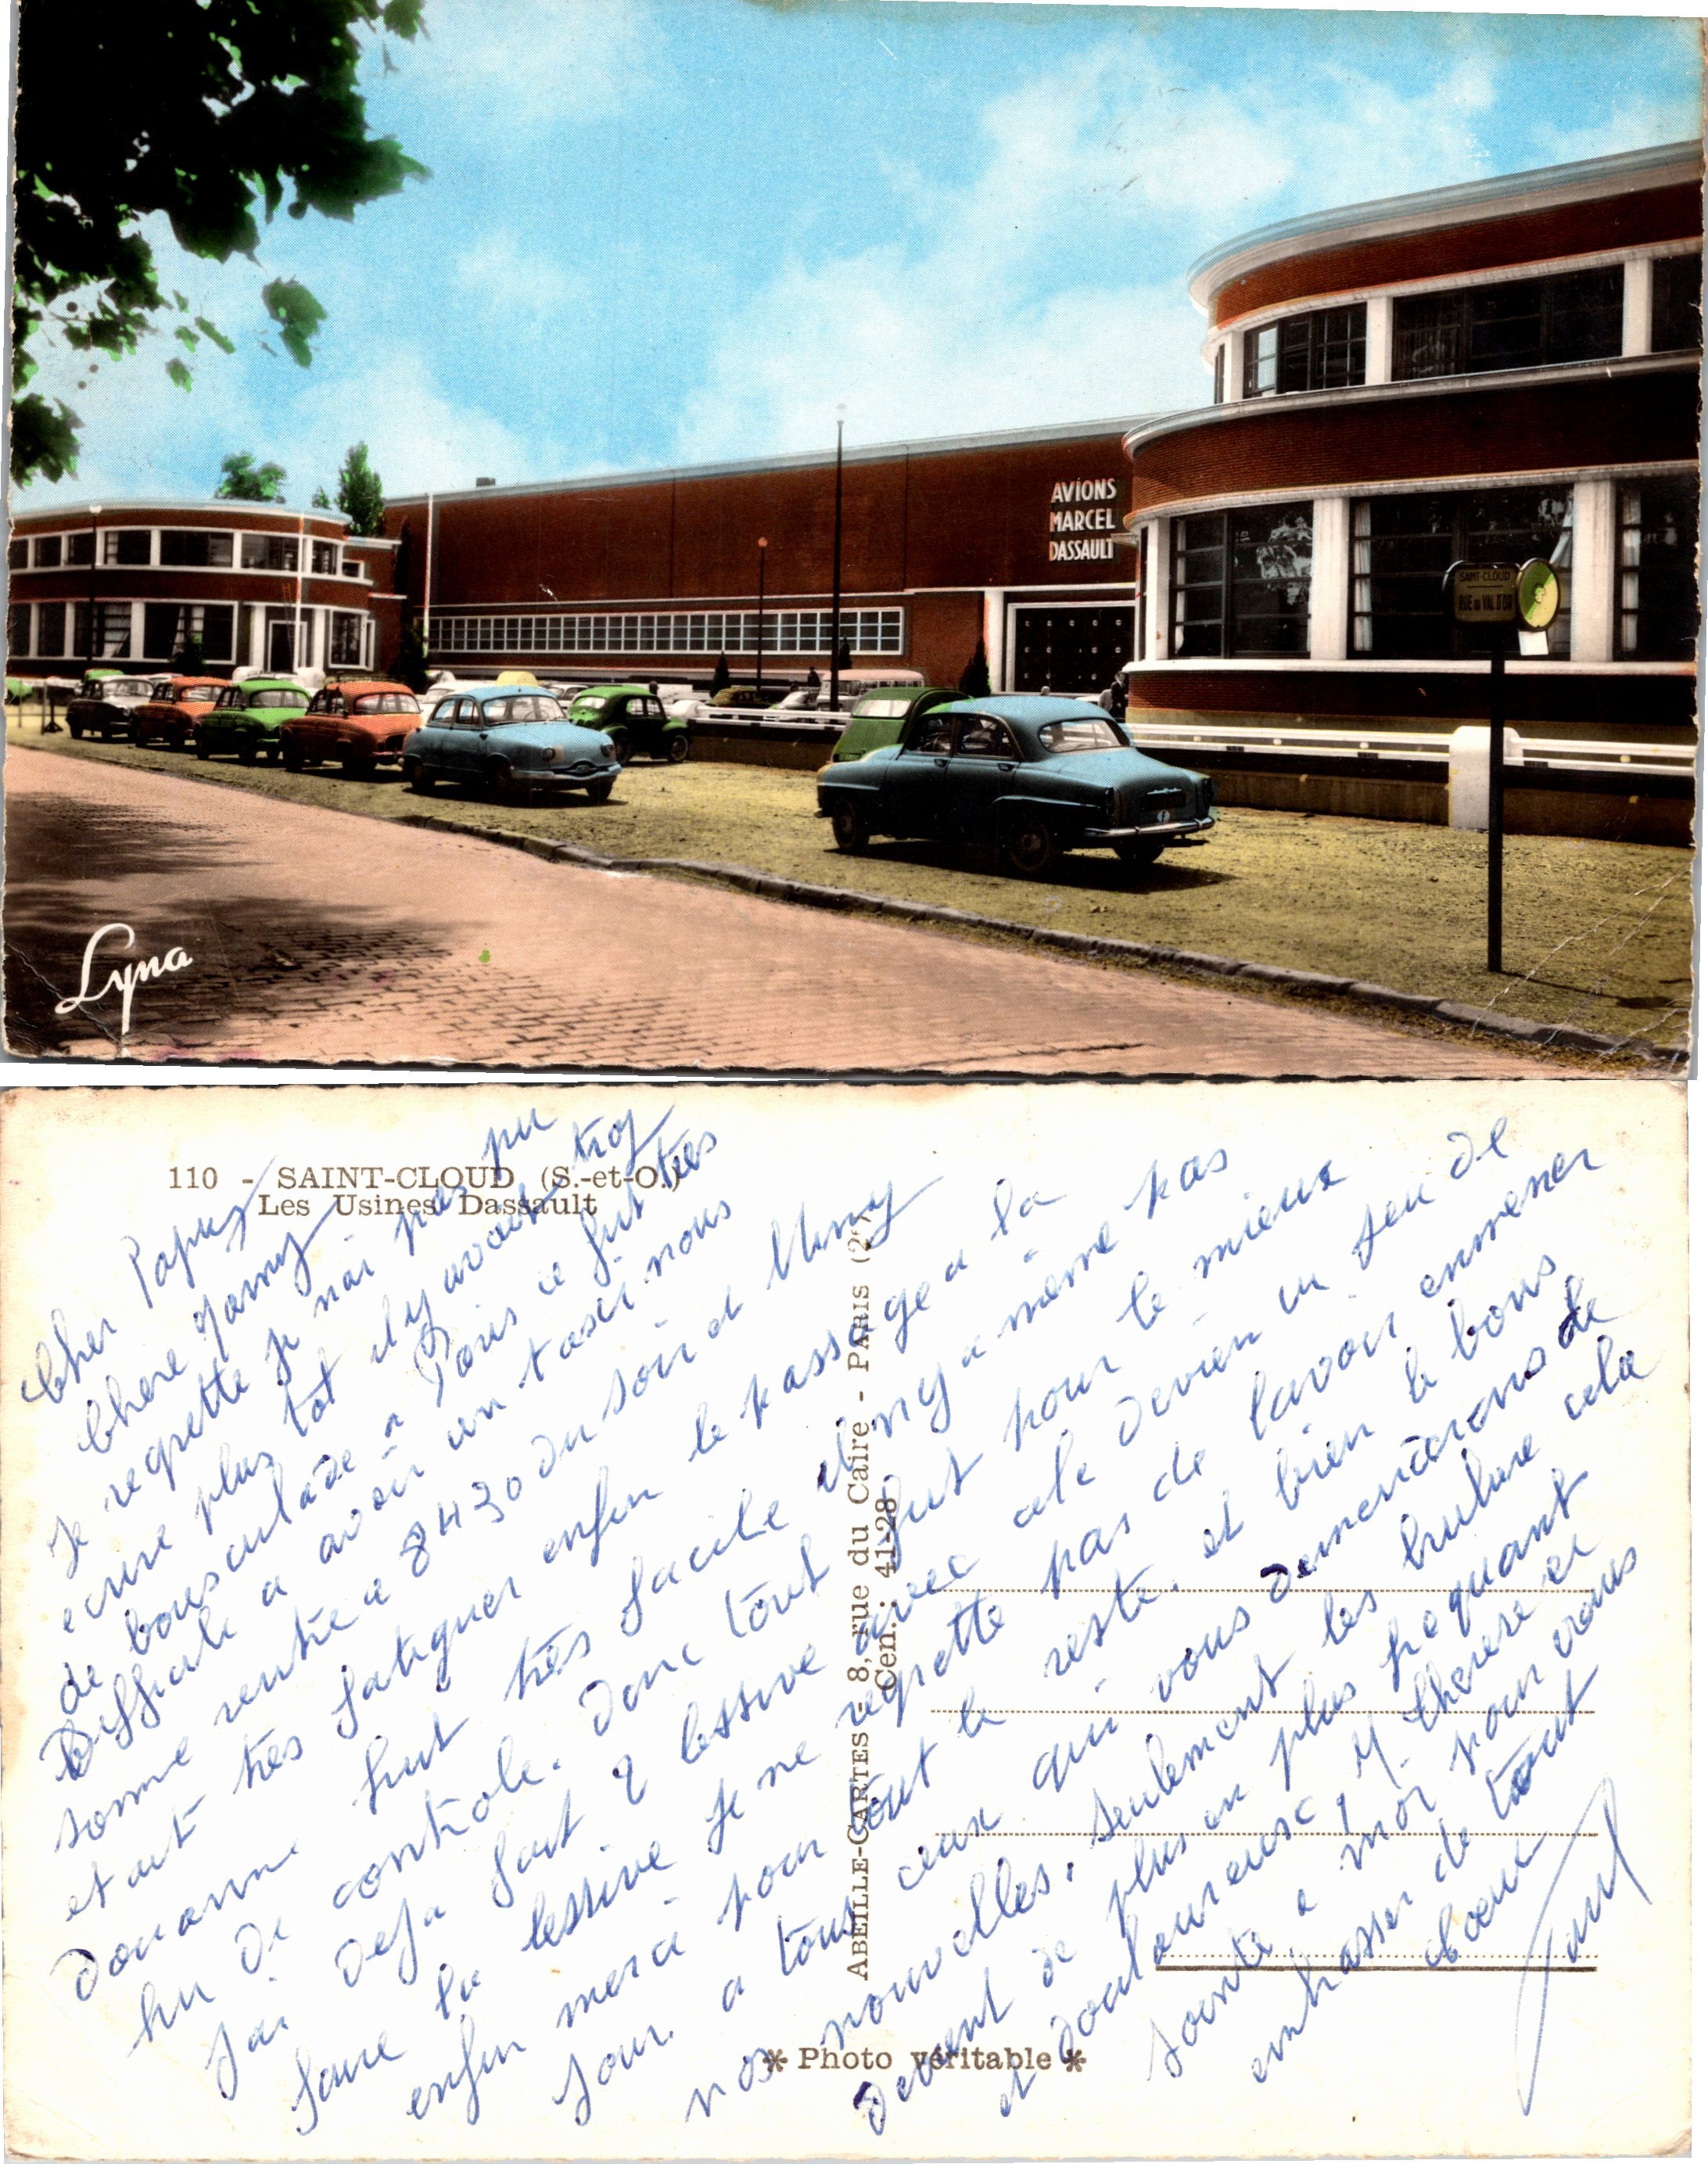 AVIONS
MARCEL
DASSAULT
SAINT-CLOUD
RUE du VAL D'OR
Lyna
110 - SAINT-CLOUD (S.-et-O.)
Les Usines Dassault
Cher Papuy
Chere Mamy
Je regrette je nai pas pu
ecrire plus tot il y avait trop
de bousculade a Paris ce fut tres
Difficile a avoir un taxi nous
somme rentré a 8H30 du soir et
etait très fatiguer enfin le passage a la
Douanne fut très facile il ny a même pas
hu de controle. Donc tout fut pour le mieux
Jai Deja fait 2 lessive avec ele Devien un jeu de
faire la lessive Je ne regrette pas de lavoir enmener
enfin merci pour tout le reste. et bien le bons
Jour a tous ceux qui vous Demanderons de
nos nouvelles. seulement les brulure cela
Devient de plus en plus frequant
et Douloureuse, M. Cherie et
Jointe a moi pour vous
embrasser de tout
coeur
ABEILLE-CARTES - 8, rue du Caire - PARIS (2e)
Cen.: 41-28
* Photo véritable *